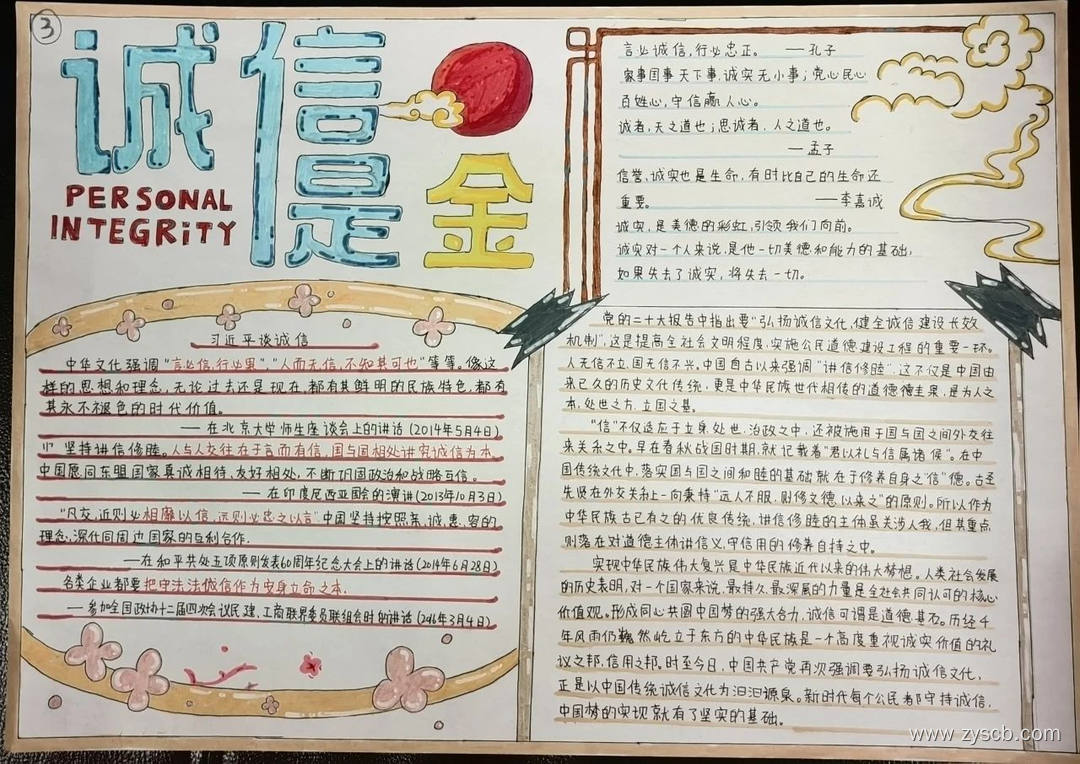 3
诚信是金
PERSONAL
INTEGRiTY
言必诚信,行必忠正。 —孔子
家事国事天下事,诚实无小事;党心民心
百姓心,守信赢人心。
诚者,天之道也;思诚者,人之道也。
—孟子
信誉、诚实也是生命,有时比自己的生命还
重要。 —李嘉诚
诚实,是美德的彩虹,引领我们向前。
诚实对一个人来说,是他一切美德和能力的基础,
如果失去了诚实,将失去一切。
习近平谈诚信
中华文化强调“言必信,行必果”,“人而无信,不知其可也”等等。像这
样的思想和理念,无论过去还是现在,都有其鲜明的民族特色,都有
其永不褪色的时代价值。
—在北京大学师生座谈会上的讲话(2014年5月4日)
坚持讲信修睦。人与人交往在于言而有信,国与国相处讲究诚信为本
中国愿同东盟国家真诚相待,友好相处,不断巩固政治和战略互信。
—在印度尼西亚国会的演讲(2013年10月3日)
“凡交,近则必相靡以信,远则必忠之以言”中国坚持按照亲、诚、惠、容的
理念,深化同周边国家的互利合作.
—在和平共处五项原则发表60周年纪念大会上的讲话(2014年6月28日)
各类企业都要把守法诚信作为安身立命之本.
—参加全国政协十二届四次会议民建、工商联界委员联组会时的讲话(2016年3月4日)
党的二十大报告中指出要“弘扬诚信文化,健全诚信建设长效
机制”,这是提高全社会文明程度,实施公民道德建设工程的重要一环。
人无信不立,国无信不兴。中国自古以来强调“讲信修睦”,这不仅是中国由
来已久的历史文化传统,更是中华民族世代相传的道德德圭臬,是为人之
本,处世之方,立国之基。
“信”不仅适应于立身处世,治政之中,还被施用于国与国之间外交往
来关系之中。早在春秋战国时期,就记载着“君以礼与信属诸侯”。在中
国传统文化中,落实国与国之间和睦的基础就在于修养自身之“信”德。古圣
先贤在外交关系上一向秉持“远人不服,则修文德以来之”的原则。所以作为
中华民族古已有之的优良传统,讲信修睦的主体虽关涉人我,但其重点
则落在对道德主体讲信义,守信用的修养自持之中。
实现中华民族伟大复兴是中华民族近代以来的伟大梦想。人类社会发展
的历史表明,对一个国家来说,最持久、最深层的力量是全社会共同认可的核心
价值观。形成同心共圆中国梦的强大合力,诚信可谓是道德基石。历经千
年风雨仍巍然屹立于东方的中华民族是一个高度重视诚实价值的礼
议之邦,信用之邦。时至今日,中国共产党再次强调要弘扬诚信文化,
正是以中国传统诚信文化为汩汩源泉。新时代每个公民都守持诚信,
中国梦的实现就有了坚实的基础.
www.zyscb.com